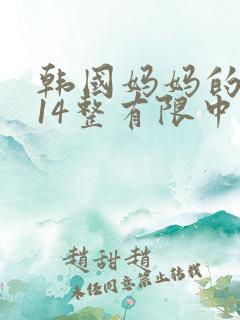 韩国妈妈的
14整有限中
赵甜赵
未经同意禁止转载